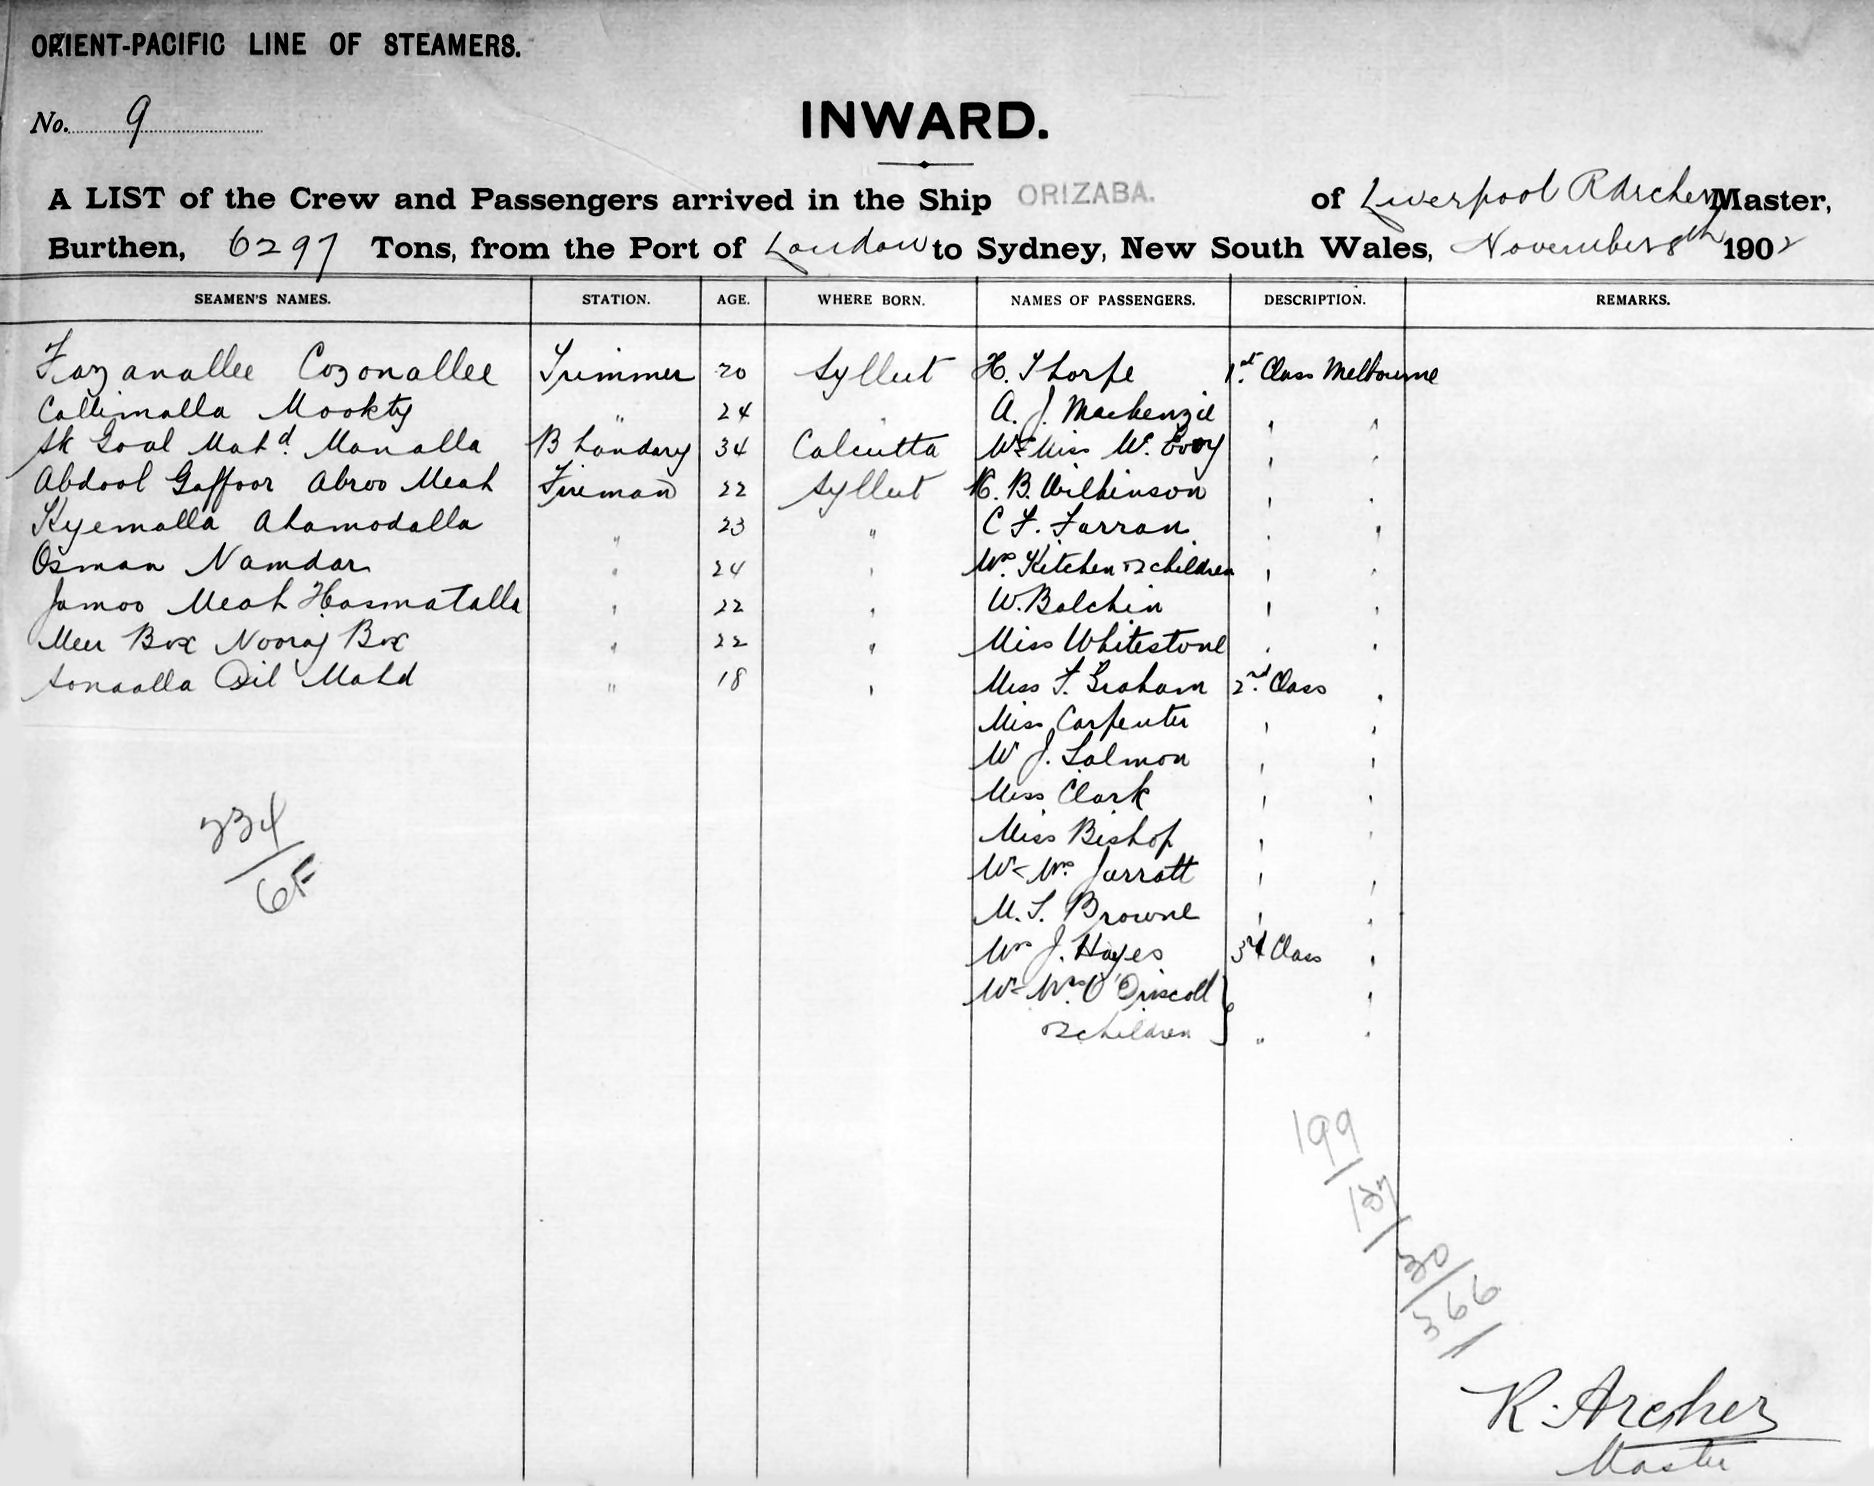 ORIENT-PACIFIC LINE OF STEAMERS.
No. 9
INWARD.
A LIST of the Crew and Passengers arrived in the Ship ORIZABA. of Liverpool R Archer Master,
Burthen, 6297 Tons, from the Port of London to Sydney, New South Wales, November 8th 1902
SEAMEN'S NAMES. STATION. AGE. WHERE BORN. NAMES OF PASSENGERS. DESCRIPTION. REMARKS.
Fazanallee Cozonallee Trimmer 20 Syllut H. Thorpe 1st Class Melbourne
Callimalla Mookty " 24 " A. J. Mackenzie " "
Sk Goal Mahd. Manalla Bhandary 34 Calcutta Miss " "
Abdool Gaffoor Abroo Meah Fireman 22 Syllut H. B. Wilkinson " "
Kyemalla Ahamodalla " 23 " C F. Farran " "
Osman Namdar " 24 " Mrs. Kitchen & 2 children " "
Jamoo Meah Hasmatalla " 22 " W. Balchin " "
Meer Box Nooraj Box " 22 " Miss Whitestone " "
Sonaalla Dil Mahd " 18 " Miss F. Graham 2nd Class "
Miss Carpenter " "
W J. Salmon " "
Miss Clark " "
Miss Bishop " "
Mr & Mrs. Jarratt " "
M. S. Browne " "
Mrs J. Hayes 3rd Class "
Mr & Mrs. O'Driscoll "
& 2 children } " "
234
6F
199
137
30
366
R. Archer
Master